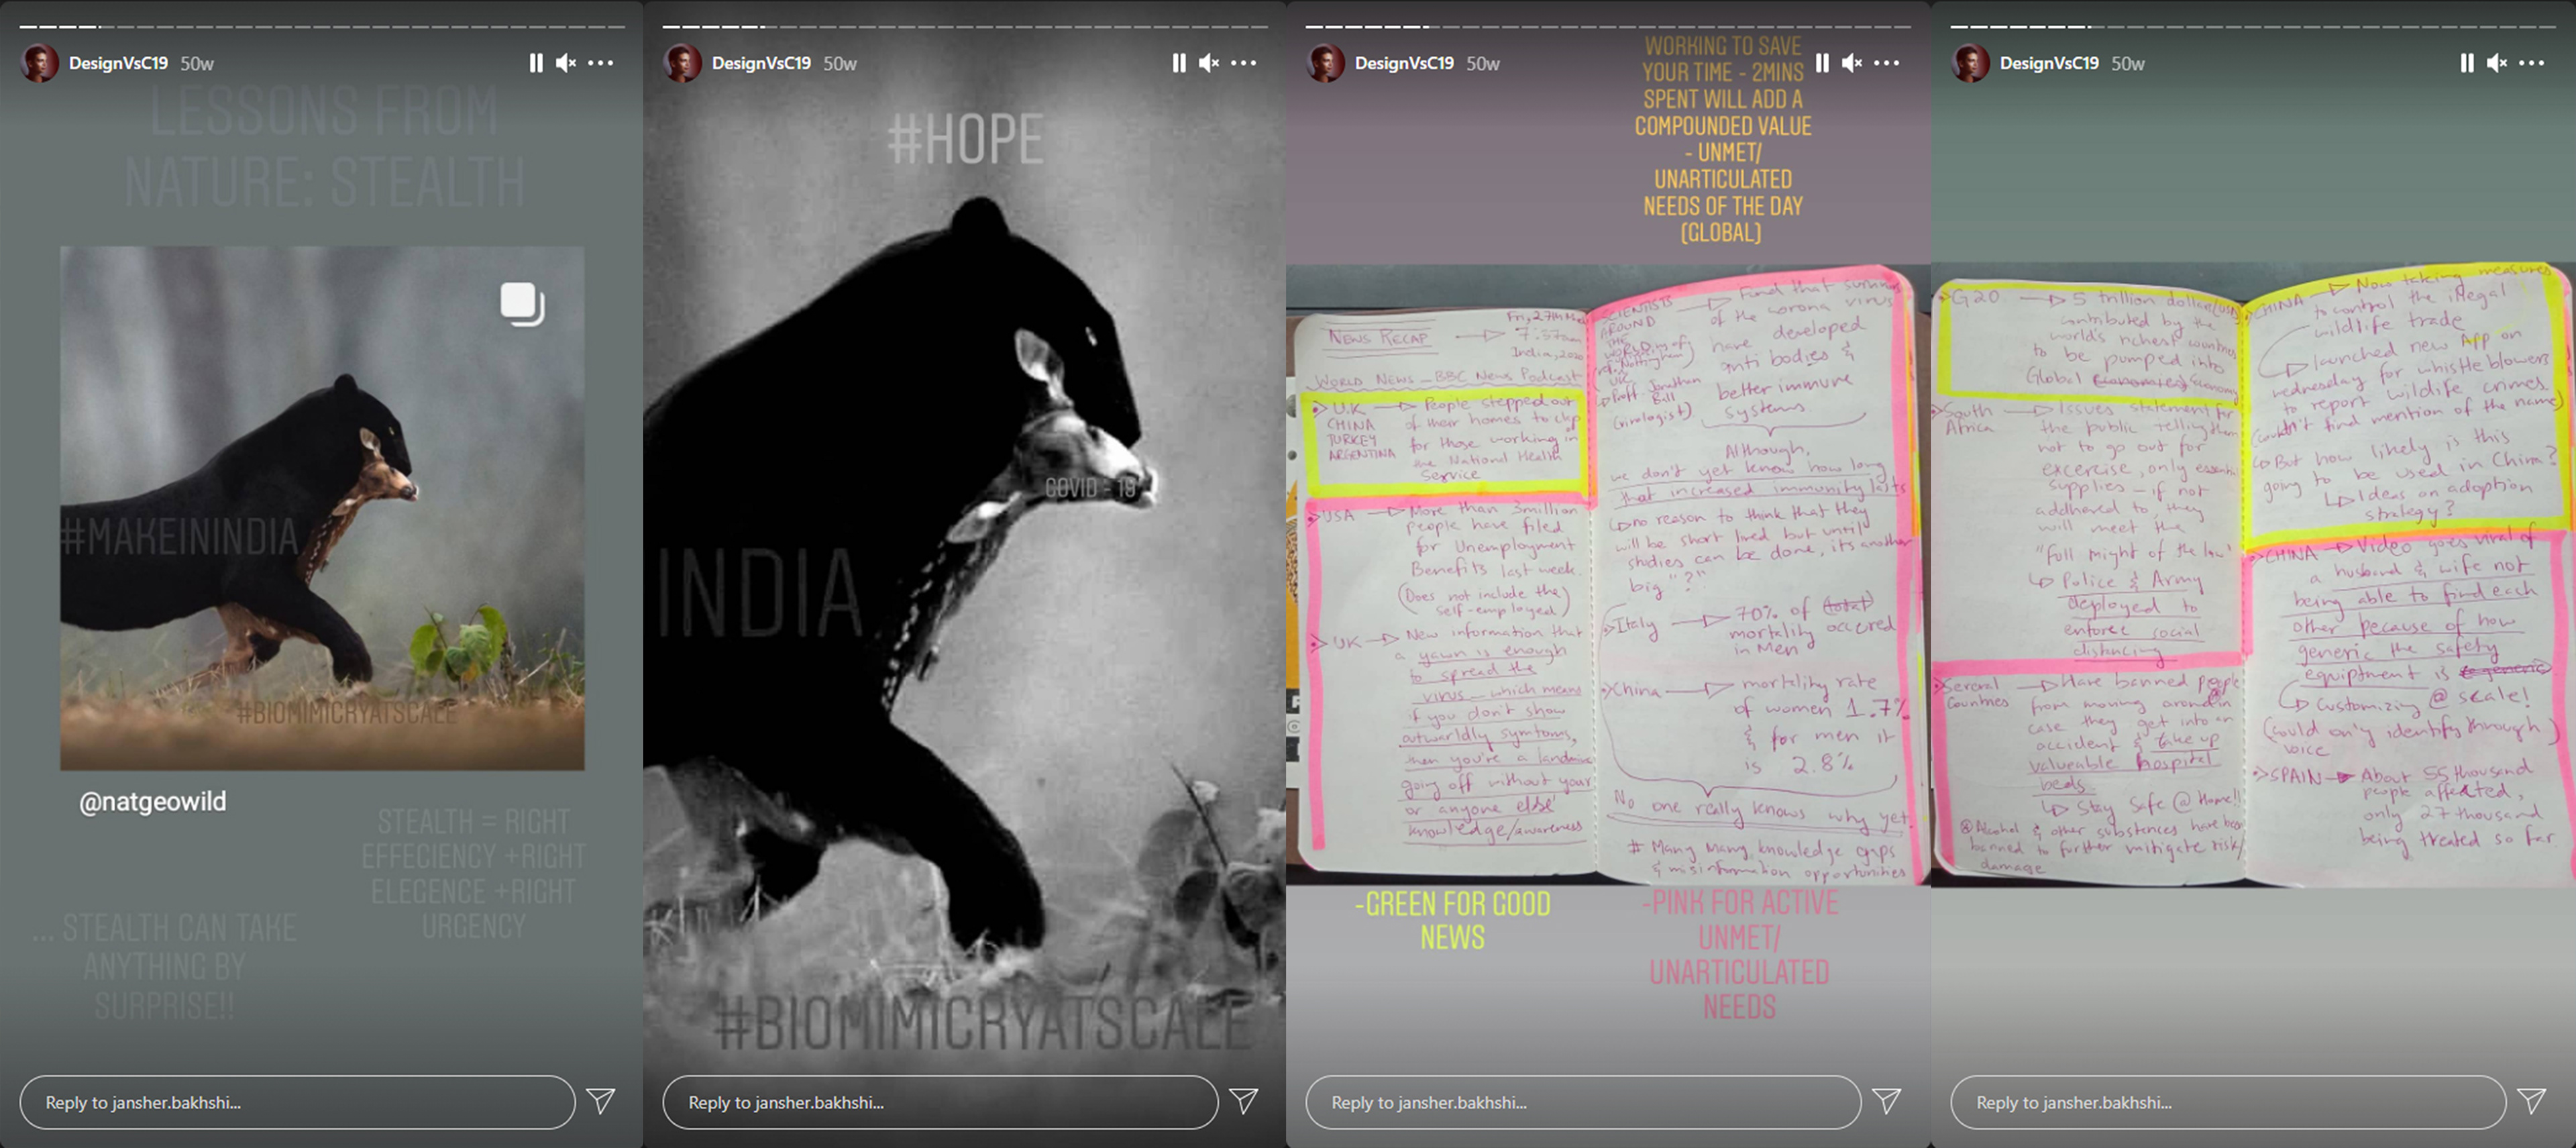 DesignVsC19 50w
LESSONS FROM
NATURE: STEALTH
#MAKEININDIA
#BIOMIMICRYATSCALE
@natgeowild
STEALTH = RIGHT
EFFECIENCY +RIGHT
ELEGENCE +RIGHT
URGENCY
... STEALTH CAN TAKE
ANYTHING BY
SURPRISE!!
Reply to jansher.bakhshi...
DesignVsC19 50w
#HOPE
COVID - 19
INDIA
#BIOMIMICRYATSCALE
Reply to jansher.bakhshi...
DesignVsC19 50w
WORKING TO SAVE
YOUR TIME - 2MINS
SPENT WILL ADD A
COMPOUNDED VALUE
- UNMET/
UNARTICULATED
NEEDS OF THE DAY
(GLOBAL)
Fri, 27th
NEWS RECAP 7:37am
India, 2020
WORLD NEWS - BBC News Podcast
U.K People stepped out
CHINA of their homes to clap
TURKEY for those working in
ARGENTINA the National Health
Service
USA More than 3million
people have filed
for Unemployment
Benefits last week.
(Does not include the
self-employed)
UK New information that
a yawn is enough
to spread the
virus - which means
if you don't show
outwardly symtoms,
then you're a landmine
going off without your
or anyone else'
knowledge/awareness
SCIENTISTS Find that
AROUND of the corona virus
THE have developed
WORLD anti bodies &
better immune
systems.
UK
Proff. Jonathan
Ball
(virologist)
Although,
we don't yet know how long
that increased immunity lasts
no reason to think that they
will be short lived but until
studies can be done, its another
big "?"
Italy 70% of (total)
mortality occured
in Men
China mortality rate
of women 1.7%
& for men it
is 2.8%
No one really knows why yet.
# Many Many knowledge gaps
& misinformation opportunities
-GREEN FOR GOOD
NEWS
-PINK FOR ACTIVE
UNMET/
UNARTICULATED
NEEDS
Reply to jansher.bakhshi...
DesignVsC19 50w
G20 5 trillion dollar
contributed by the
world's richest countries
to be pumped into
Global Economy
South Issues statement for
Africa the public telling them
not to go out for
excercise, only
supplies - if not
addhered to, they
will meet the
"full might of the law"
Police & Army
deployed to
enforce social
distancing
Several Have banned people
Countries from moving around in
case they get into an
accident & take up
valueable hospital
beds.
Stay Safe @ Home!!
@Alcohol & other substences have been
banned to further mitigate risk/
damage
CHINA Now taking measures
to control the illegal
wildlife trade
launched new App on
wednesday for whistle blowers
to report wildlife crimes
(couldn't find mention of the name)
But how likely is this
going to be used in China?
Ideas on adoption
strategy?
CHINA Video goes viral of
a husband & wife not
being able to find each
other because of how
generic the safety
equiptment is
Customizing @ scale!
(could only identify through
voice)
SPAIN About 55 thousand
people affected,
only 27 thousand
being treated so far
Reply to jansher.bakhshi...